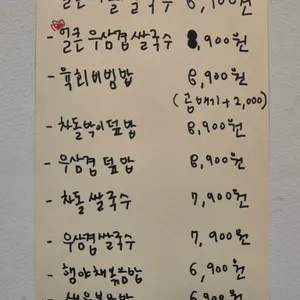 얼큰 쌀국수 8,900원
- 얼큰 우삼겹 쌀국수 8,900원
- 육회비빔밥 8,900원
(곱배기+2,000)
- 차돌박이 덮밥 8,900원
- 우삼겹 덮밥 8,900원
- 차돌 쌀국수 7,900원
- 우삼겹쌀국수 7,900원
- 햄야채볶음밥 6,900원
- 새우볶음밥 6,900원